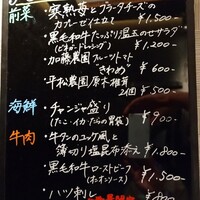 前菜
・寒熟苺とブラータチーズの
カプレーゼ仕立て ¥1.500-
・黒毛和牛たっぷり温玉のせサラダ
¥1.200-
・加藤農園フルーツトマト
¥600-
・平松農園 原木椎茸
2個 ¥500-
海鮮
・チャンジャ盛り
(たこ・イカ・たらの胃袋) ¥900-
牛肉
・牛タンのコック風と
薄切り塩昆布添え ¥1.800-
・黒毛和牛ローストビーフ
(ポン酢ソース) ¥1.500-
・ハツ刺し